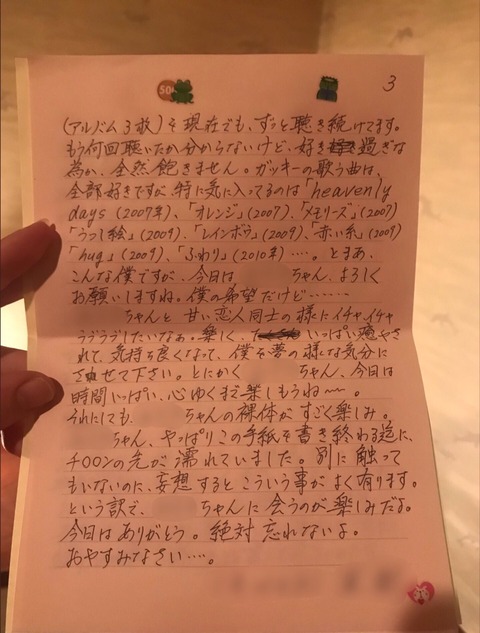 50
3
(アルバム3枚)を現在でも、ずっと聴き続けてます。
もう何回聴いたか分からないけど、好き過ぎな
為か、全然飽きません。ガッキーの歌う曲は、
全部好きですが、特に気に入ってるのは「heavenly
days (2007年)、「オレンジ」(2007)、「メモリーズ」(2007)
「うつし絵」(2009)、「レインボウ」(2009)、「赤い糸」(2009)
「hug」(2009)、「ふわり」(2010年)‥‥。とまあ、
こんな僕ですが、今日は ちゃん、よろしく
お願いしますね。僕の希望だけど‥‥‥
ちゃんと甘い恋人同士の様にイチャイチャ
ラブラブしたいなぁ。楽しく、 いっぱい癒やさ
れて、気持ち良くなって、僕を夢の様な気分に
させて下さい。とにかく ちゃん、今日は
時間いっぱい、心ゆくまで楽しもうね〜。
それにしても、 ちゃんの裸体がすごく楽しみ。
ちゃん、やっぱりこの手紙を書き終わる迄に、
チ○○ンの先が濡れていました。別に触って
もいないのに、妄想するとこういう事がよく有ります。
という訳で、 ちゃんに会うのが楽しみだよ。
今日はありがとう。絶対忘れないよ。
おやすみなさい‥‥。